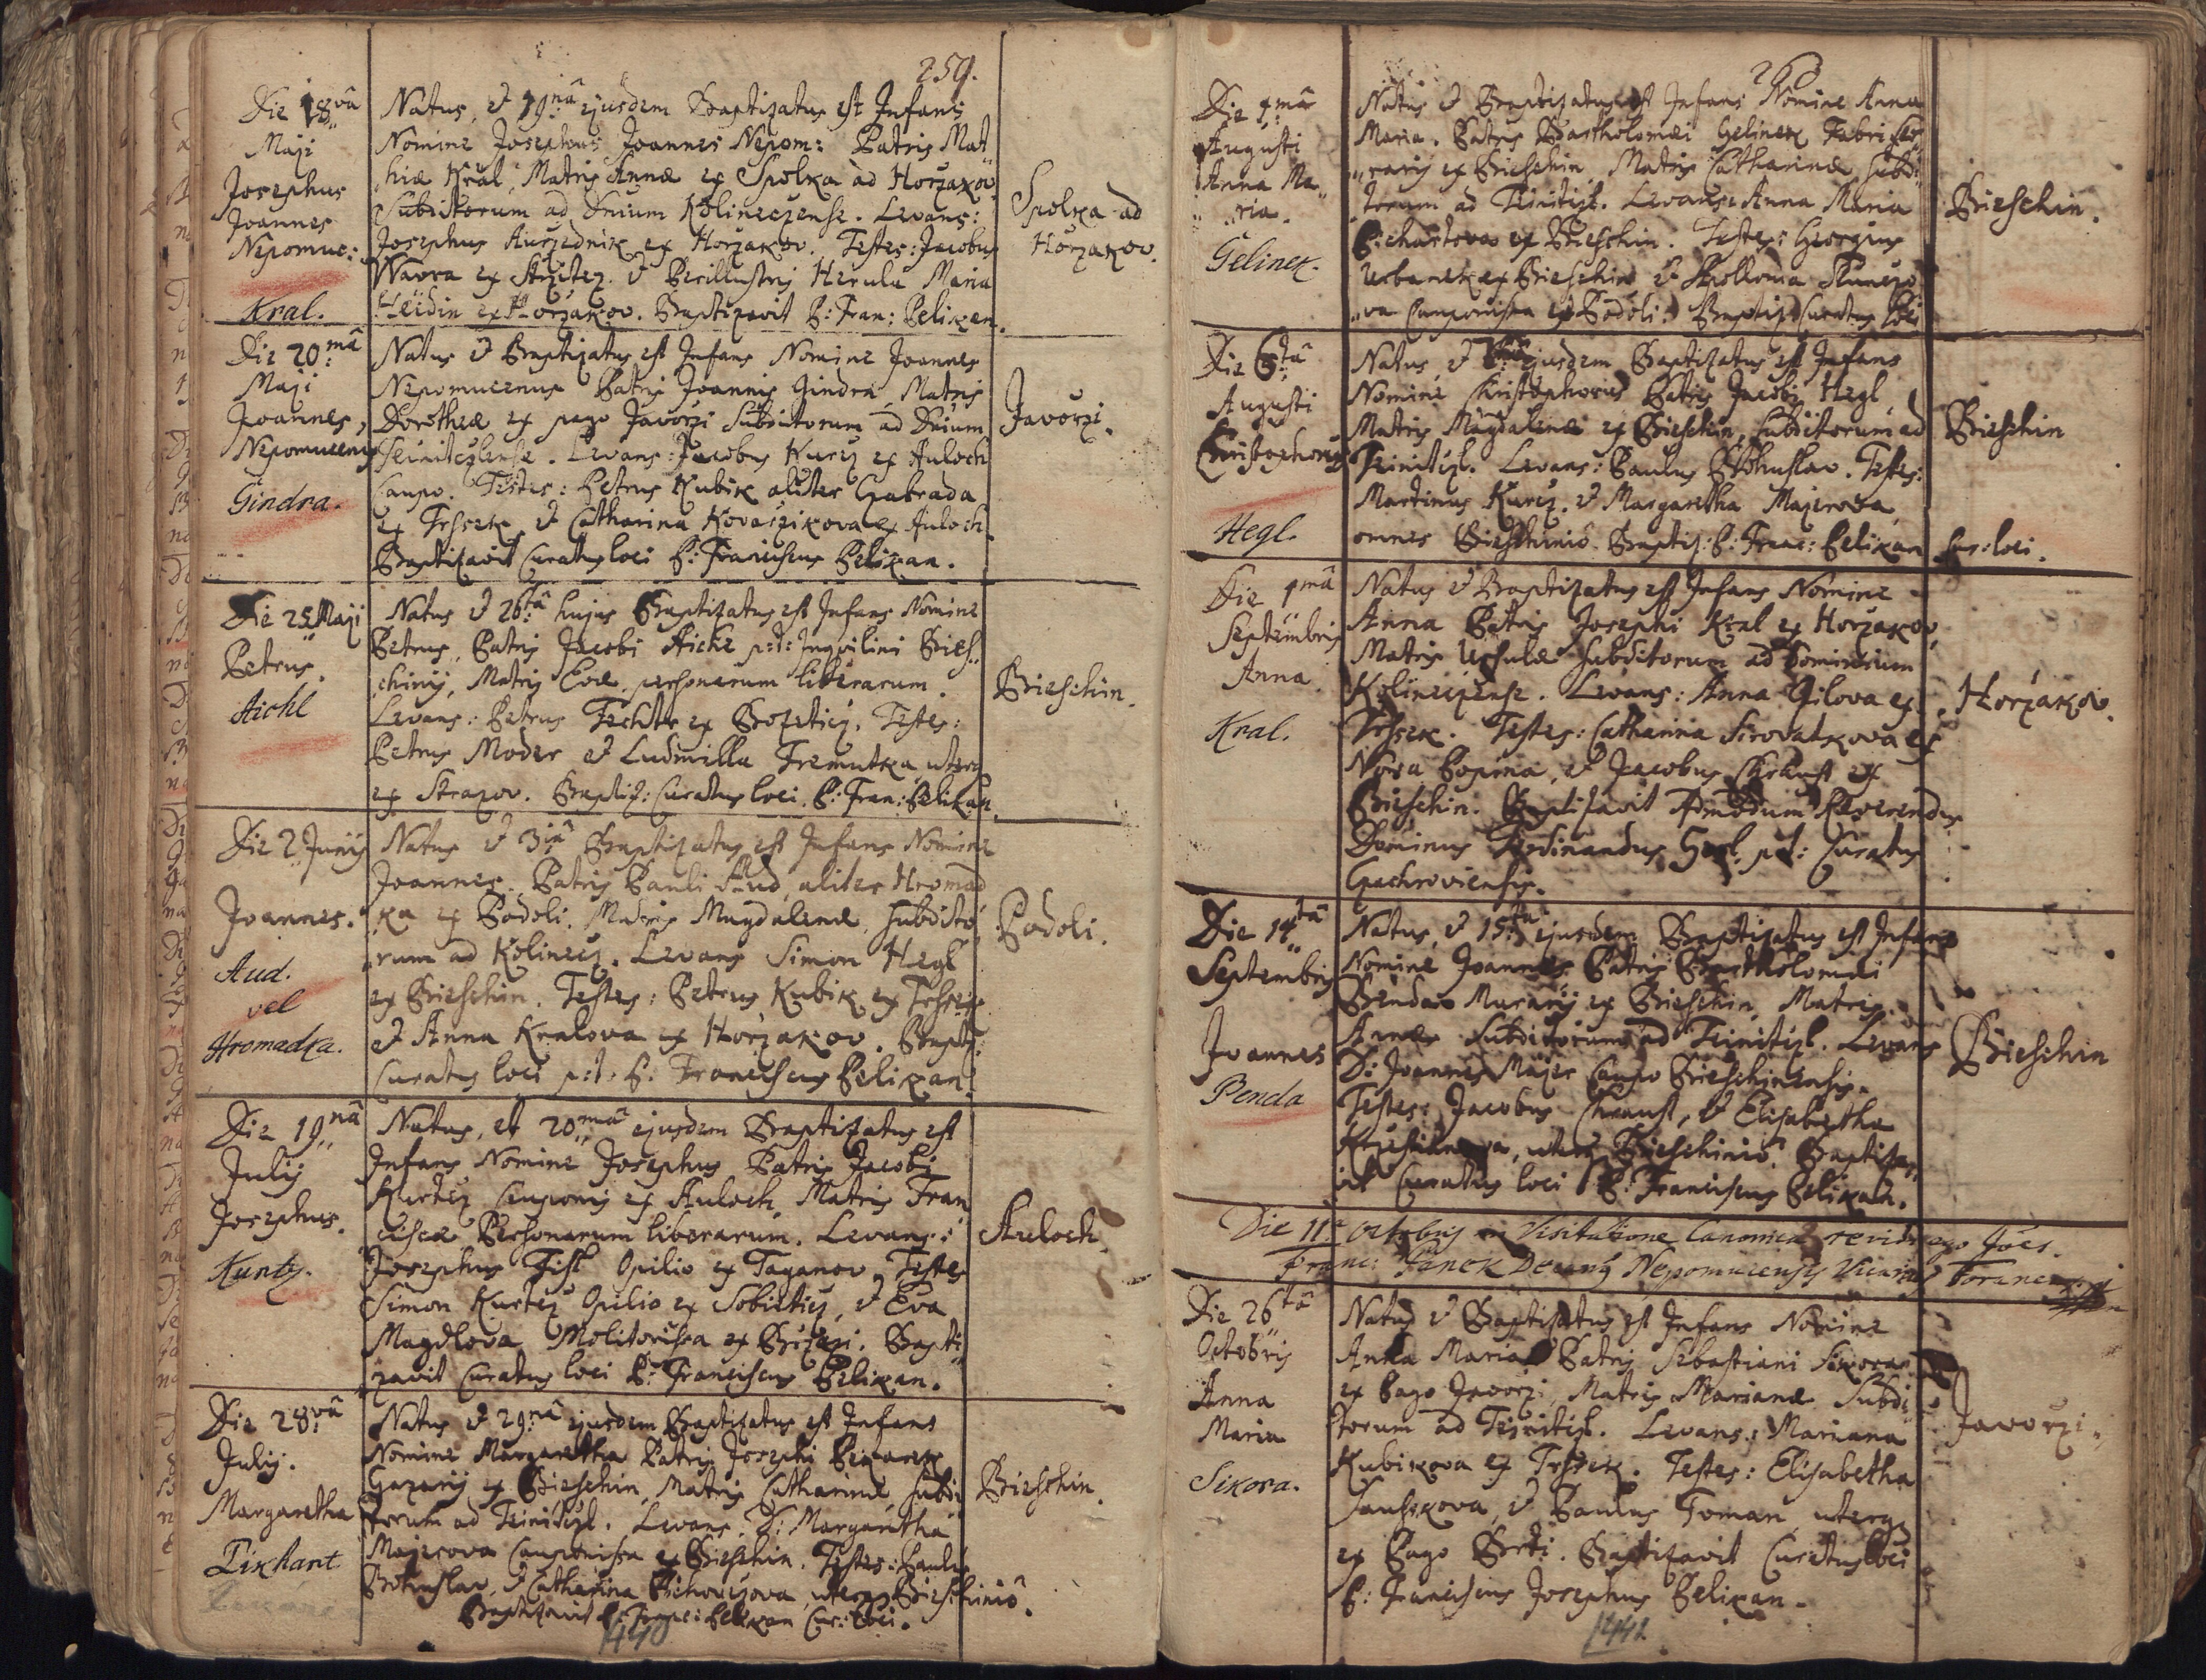 259.
Die 18va
Maji
Josephus
Joannes
Nepomuc:
Kral.
Natus, et 19na ejusdem Baptizatus est Infans
Nomine Josephus Joannes Nepom: Patris Mat
hiæ Kral, Matris Annæ ex Spolka ad Horzakov
Subditorum ad Dnium Kolineczense. Levans:
Josephus Aurzednik ex Horzakov. Testes: Jacobus
Wavra ex et Perillustris Herula Maria
Heidin ex Horzakov. Baptizavit P: Fran: Pelikan.
Spolka ad
Horzakov.
Die 20ma
Maji
Joannes,
Nepomucenus
Gindra.
Natus et Baptizatus est Infans Nomine Joannes
Nepomucenus Patris Joannis Gindra, Matris
Dorotheæ ex pago Javorzi Subditorum ad Dnium
Teinitzlense. Levans: Jacobus Kurcz ex Auloch
Caupo. Testes: Petrus Kubik aliter Czabrada
ex Trssek, et Catharina Kovarzikova ex Auloch.
Baptizavit Curatus loci P: Franciscus Pelikan.
Javorzi.
Die 25 Maji
Petrus.
Aichl
Natus et 26ta hujus Baptizatus est Infans Nomine
Petrus, Patris Jacobi Aichl p:t: Inquilini Bies
chinij, Matris Evæ, personarum liberarum.
Levans: Petrus Techtr ex Bozeticz. Testes:
Petrus Moder et Ludmilla Fremutka, uterq
ex Strazov. Baptiz: Curatus loci P: Fran: Pelikan.
Bieschin.
Die 2 Junij
Joannes.
Aud.
vel
Hromadka.
Natus et 3tia Baptizatus est Infans Nomine
Joannes. Patris Pauli Aud, aliter Hromad
ka ex Podoli, Matris Magdalenæ, Subdito
rum ad Kolinecz. Levans Simon Hegl
ex Bieschin. Testes: Petrus Kubik ex Trssek
et Anna Kralova ex Horzakov. Bapti:
Curatus loci p:t: P: Franciscus Pelikan.
Podoli.
Die 19na
Julij
Josephus.
Kuntz.
Natus, et 20ma ejusdem Baptizatus est
Infans Nomine Josephus, Patris Jacobi
Kurtez Cauponis ex Auloch, Matris Fran
ciscæ Personarum liberarum. Levans:
Josephus Fisl Opilio ex Taganov, Testes
Simon Kurtez Opilio ex Sobieticz, et Eva
Magdlova Molitorissa ex Brzezi. Bapti
zavit Curatus loci P: Franciscus Pelikan.
Auloch.
Die 28va
Julij.
Margaretha
Pixhart
Natus et 29na ejusdem Baptizatus est Infans
Nomine Margaretha Patris Josephi
ex Bieschin, Matris Catharinæ, Subdi
torum ad Teinitzl. Levans. D: Margaretha
Majerova Cauponissa ex Bieschin. Testes: Paulus
Bohuslav, et Catharina uterq Bieschinio.
Baptizavit P: Franc: Pelikan Cur: loci.
Bieschin.
440
260
Die 1ma
Augusti
Anna Ma
ria.
Gelinek.
Natus et Baptizatus est Infans Nomine Anna
Maria. Patris Bartholomæi Gelinek Fabri fer
rarij ex Bieschin, Matris Catharinæ, Subdi
torum ad Teinitzl. Levans: Anna Maria
ex Bieschin. Testes: Georgius
Urbanek ex Bieschin et Apollonia
va Cauponissa ex Podoli. Baptiz: Curatus loci
Bieschin.
Die 6ta
Augusti
Christophorus
Hegl.
Natus, et ejusdem Baptizatus est Infans
Nomine Christophorus Patris Jacobi Hegl,
Matris Magdalenæ ex Bieschin, Subditorum ad
Teinitzl. Levans: Paulus Bohuslav. Testes:
Martinus Kurcz, et Margaretha Majerova,
omnes Bieschinio. Baptiz: P: Franc: Pelikan Cur: loci.
Bieschin
Die 1ma
Septembris
Anna.
Kral.
Natus et Baptizatus est Infans Nomine
Anna Patris Josephi Kral ex Horzakov,
Matris Ursulæ Subditorum ad Dominium
Kolineczense. Levans: Anna Gilova ex
Trssek. Testes: Catharina Sirovatkova ex
Nova Popina, et Jacobus Chraust ex
Bieschin. Baptizavit Admodum Reverendus
Dominus Ferdinandus p:t: Curatus
Czachroviensis.
Horzakov.
Die 14ta
Septembris
Joannes
Benda
Natus, et 15ta ejusdem Baptizatus est Infans
Nomine Joannes. Patris Bartholomæi
Benda Murarij ex Bieschin, Matris
Annæ Subditorum ad Teinitzl. Levans
D: Joannes Majer Caupo Bieschinensis.
Testes: Jacobus Chraust, et Elisabetha
uterq Bieschinio. Baptiza
vit Curatus loci P: Franciscus Pelikan.
Bieschin
Die 11a Octobris in Visitatione Canonica revidi ego Joes.
Franc: Fanek Decanus Nepomucensis Vicarius Foraneus
Die 26ta
Octobris
Anna
Maria
Sikora.
Natus et Baptizatus est Infans Nomine
Anna Maria Patris Sebastiani Sikora
ex Pago Javorzi, Matris Marianæ Subdi
torum ad Teinitzl. Levans: Mariana
Kubikova ex Trssek. Testes: Elisabetha
et Paulus Toman uterq
ex Pago Brti. Baptizavit Curatus loci
P: Franciscus Josephus Pelikan.
Javorzi.
441